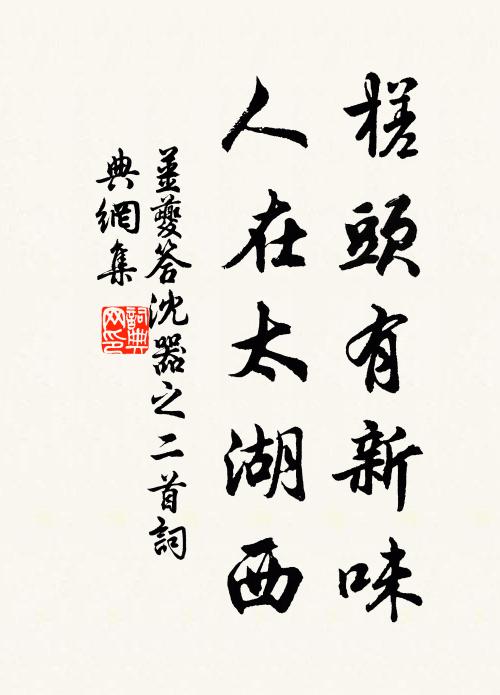 槎頭有新味
人在太湖西
姜夔答沈器之二首詞
典網集
詞典
网印